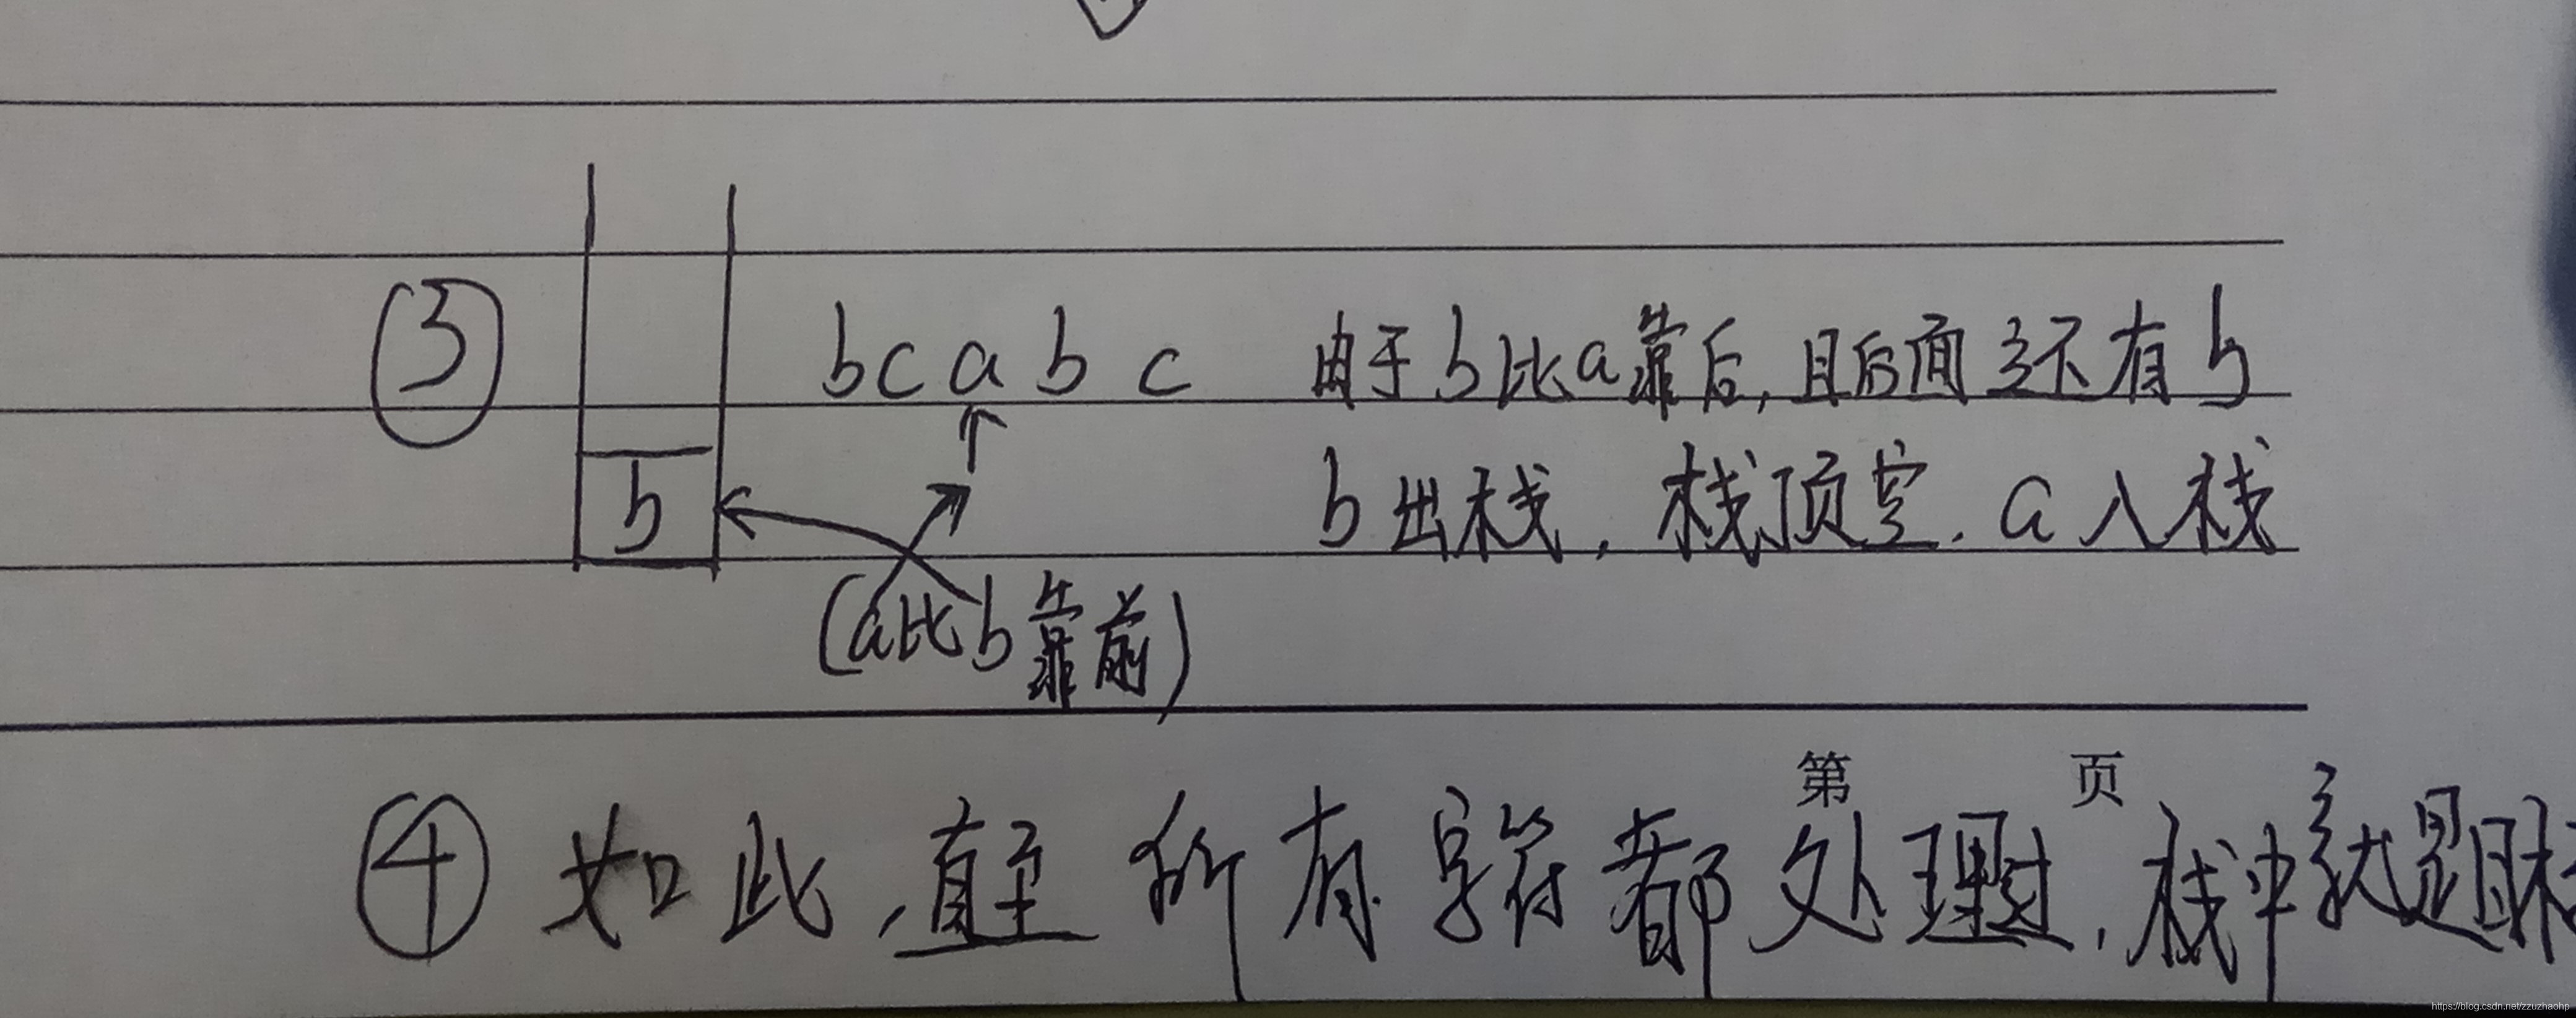 ③ b c a b c 由于b比a靠后,且后面还有b
b b出栈,栈顶空.a入栈
(a比b靠前)
第 页
④ 如此,直至所有字符都处理过,栈中就是目标
https://blog.csdn.net/zzuzhaohp